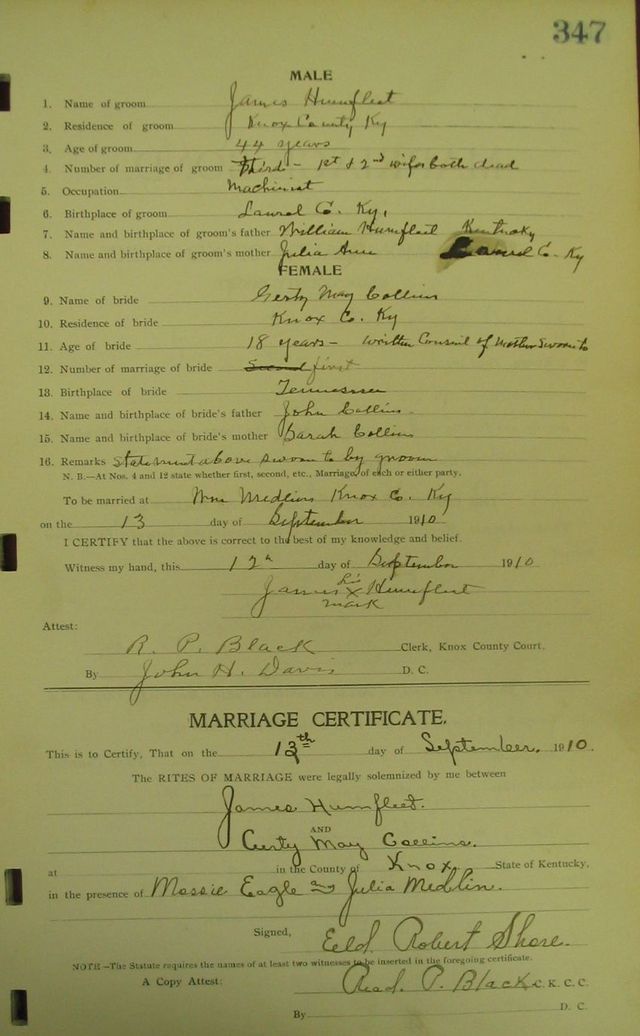 347
MALE
1. Name of groom James Humfleet
2. Residence of groom Knox County Ky
3. Age of groom 44 years
4. Number of marriage of groom Third - 1st & 2nd wifes both dead
5. Occupation Machinist
6. Birthplace of groom Laurel Co. Ky,
7. Name and birthplace of groom's father William Humfleet Kentucky
8. Name and birthplace of groom's mother Julia Ann Laurel Co. Ky
FEMALE
9. Name of bride Gerty May Collins
10. Residence of bride Knox Co. Ky
11. Age of bride 18 years - written Consent of Mother Sworn to
12. Number of marriage of bride Second first
13. Birthplace of bride Tennessee
14. Name and birthplace of bride's father John Collins
15. Name and birthplace of bride's mother Sarah Collins
16. Remarks Statement above sworn to by groom
N. B.—At Nos. 4 and 12 state whether first, second, etc., Marriage, of each or either party.
To be married at Wm Medlins Knox Co. Ky
on the 13 day of September 1910
I CERTIFY that the above is correct to the best of my knowledge and belief.
Witness my hand, this 12 day of September 1910
James his x Humfleet
mark
Attest:
R. P. Black Clerk, Knox County Court.
By John H. Davis D. C.
MARRIAGE CERTIFICATE.
This is to Certify, That on the 13th day of September. 1910.
The RITES OF MARRIAGE were legally solemnized by me between
James Humfleet.
AND
Curty May Collins.
at in the County of Knox State of Kentucky,
in the presence of Mossie Eagle and Julia Medline.
Signed, Eeld Robert Shore.
NOTE—The Statute requires the names of at least two witnesses to be inserted in the foregoing certificate.
A Copy Attest: Read. P. Black C. K. C. C.
By D. C.